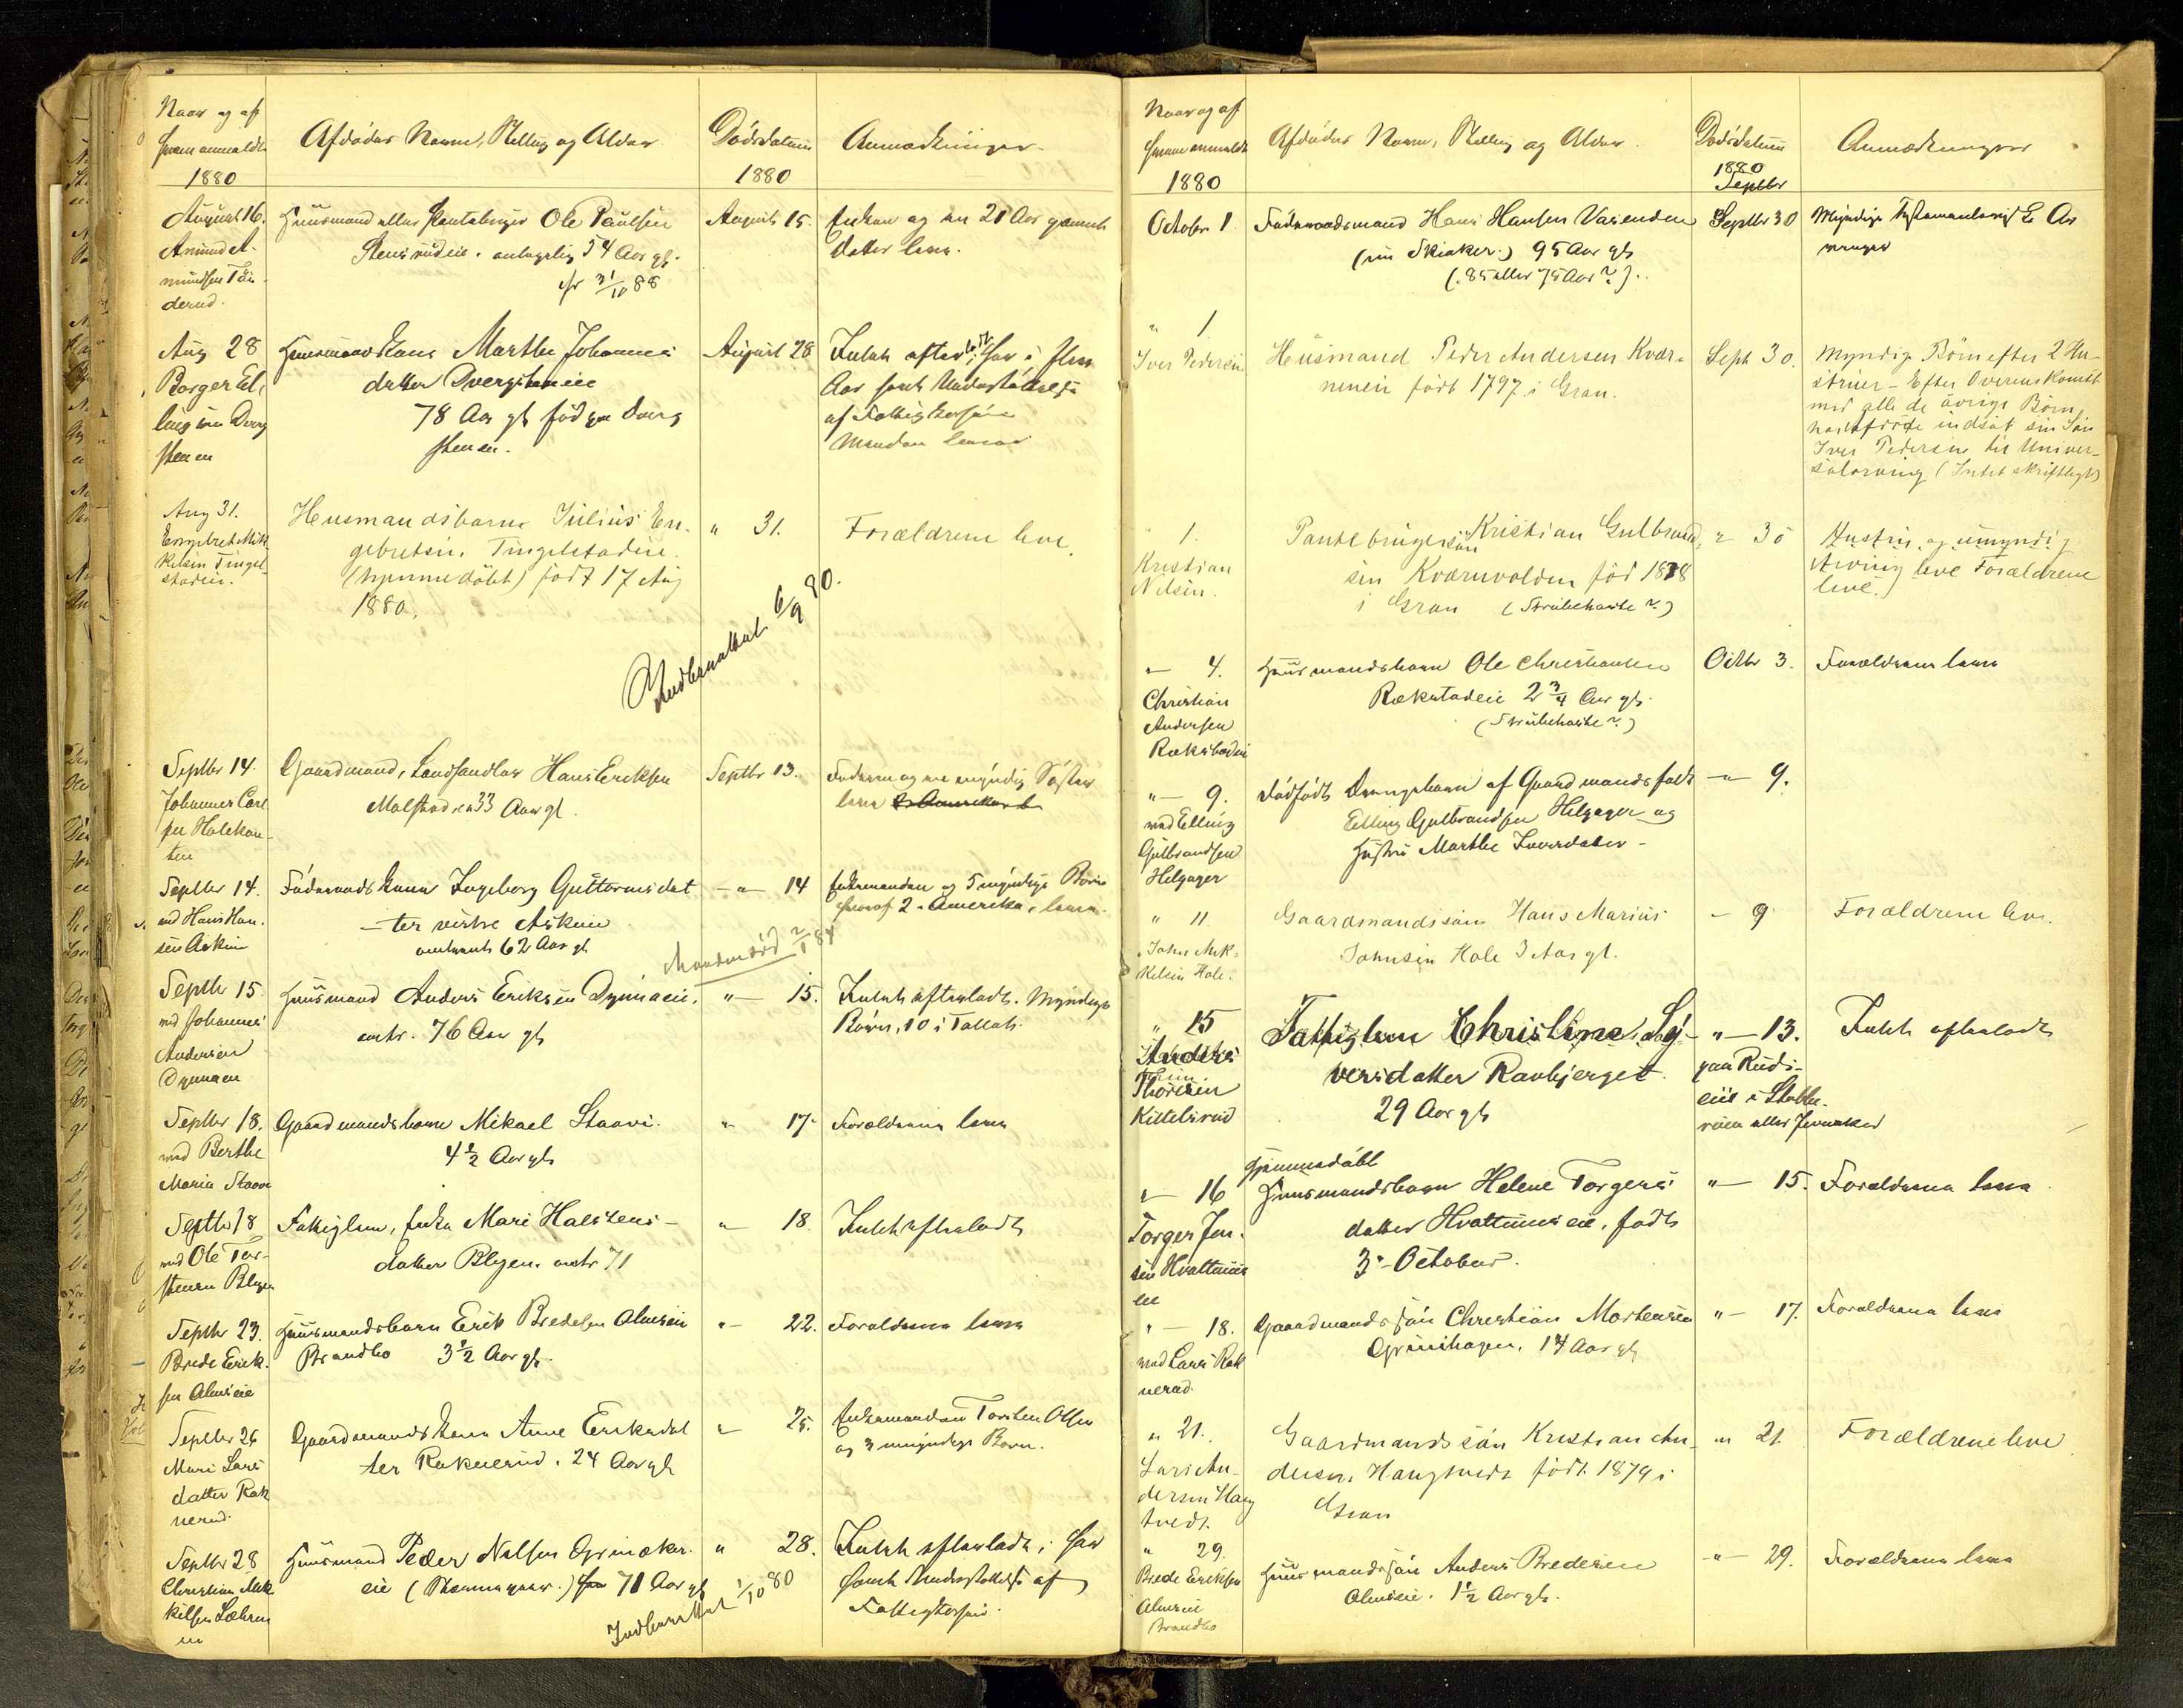 Naar og af
hvem anmeldt
1880
Afdødes Navn, Stilling og Alder
Dødsdatum
1880
Anmærkninger
August 16.
Amund A-
mundsen
derud.
Huusmand eller Plantebruger Ole Paulsen
antagelig 54 Aar gl.
August 15.
Enken og en 21 Aar gammel
Datter lever.
Aug 28
Borger El-
Dverg
stenen
Huusmandskone Marthe Johannes
datter Dvergsteneie
78 Aar gl. født paa Dverg
stenen.
August 28
Intet efter
Aar havt Understøttelse
af Fattigkassen
Manden lever
Aug 31.
Engebret Mik-
kelsen Tingel-
stadeie.
Husmandsbarn Julius En-
gebretsen, Tingelstadeie.
(hjemmedøbt) født 17 Aug
1880.
" 31.
Forældrene leve.
Indberettet 6/9 80.
Septbr 14.
Johannes Carl
sen Halekan-
ten
Gaardmand, Landhandler Hans Eriksen
Molstad, ca 33 Aar gl.
Septbr 13.
Faderen og en myndig Søster
lever
Septbr 14.
ved Hans Han-
sen Askim
Føderaadskone Ingeborg Guttormsdat
-ter vestre Askim
omtrent 62 Aar gl.
-"- 14
Enkemanden og 5 myndige Børn
hvoraf 2 i Amerika, lever.
Manden død 2/1 84
Septbr 15.
ved Johannes
Andersen
Dynnaeie
Huusmand Anders Eriksen Dynnaeie.
omtr. 76 Aar gl.
"- 15.
Intet efterladt. Myndige
Børn, 10 i Tallet.
Septbr 18.
ved Berthe
Maria Staave
Gaardmandsbarn Mikael Staavi.
4 1/2 Aar gl.
"- 17.
Forældrene leve
Septbr 18
ved Ole Tor-
stensen Blegen
Fattiglem, Enke Mari Halstens-
datter Blegen. omtr 71
"- 18.
Intet efterladt
Septbr 23.
Brede Erik-
sen Almseie
Huusmandsbarn Erik Bredesen Almseie
Brandbo 3 1/2 Aar gl.
"- 22.
Forældrene leve
Septbr 26
Mari Lars
datter Rak
nerud.
Gaardmandskone Anne Eriksdat
ter Raknerud. 24 Aar gl.
" 25.
Enkemanden Torsten Olsen
og 3 umyndige Børn.
Septbr 28
Christian Mik
kelsen Løhren
en
Huusmand Peder Nilsen Grinaker-
eie 71 Aar gl.
" 28.
Intet efterladt; har
havt Understøttelse af
Fattigkassen.
Indberettet 1/10 80
Naar og af
hvem anmeldt
1880
Afdødes Navn, Stilling og Alder
Dødsdatum
1880
Septbr
Anmærkninger
October 1.
Føderaadsmand Hans Hansen Vasenden
(i Skiaker.) 95 Aar gl.
(85 eller 75 Aar?).
Septbr 30
Myndige
" 1
Iver Pedersen.
Husmand Peder Andersen Kvær-
neneie født 1797 i Gran.
Sept 30.
Myndige Børn efter 2 Hu-
struer - Efter Overenskomst
med alle de øvrige Børn
indsat sin Søn
Iver Pedersen til Univer-
salarving (Intet skriftligt)
" 1.
Kristian
Nilsen.
Plantebrugersøn Kristian Gulbrand-
sen Kværnvolden fød 1878
i Gran (Strubehoste?)
" 30
Hustru og umyndig
Arving leve Forældrene
leve.
"- 4.
Christian
Andersen
Rækstadeie
Huusmandsbarn Ole Christiansen
Rækstadeie 2 3/4 Aar gl.
(Strubehoste?)
Octbr 3.
Forældrene leve
"- 9.
ved Elling
Gulbrandsen
Helgager
Dødfødt Drengebarn af Gaardmandsfolk
Elling Gulbrandsen Helgager og
Hustru Marthe Iversdatter -
-"- 9.
" 11
John Mik-
kelsen Hole.
Gaardmandssøn Hans Marius
Johnsen Hole 3 Aar gl.
- 9
Forældrene leve.
" 15
Anders
Thoresen
Kittelsrud
Fattiglem Christine Sy-
versdatter Ravbjerget
29 Aar gl.
"- 13.
paa Ruds-
eie i
eller Jevnaker
Intet efterladt
"- 16
Torger Jen-
sen Hvattums
eie
Hjemmedøbt
Huusmandsbarn Helene Torgers
datter Hvattumseie, født
3die October.
"- 15.
Forældrene leve.
"- 18.
ved Lars Rak
nerud.
Gaardmandssøn Christian Mortensen
Grinihagen. 14 Aar gl.
"- 17.
Forældrene leve
" 21.
Lars An-
dersen Haug
tvedt.
Gaardmandssøn Kristian An-
dersen, Haugtvedt født 1879 i
Gran
" 21.
Forældrene leve
" 29.
Brede Eriksen
Almseie
Brandbo
Huusmandssøn Anders Bredesen
Almseie. 1 1/2 Aar gl.
-"- 29.
Forældrene leve